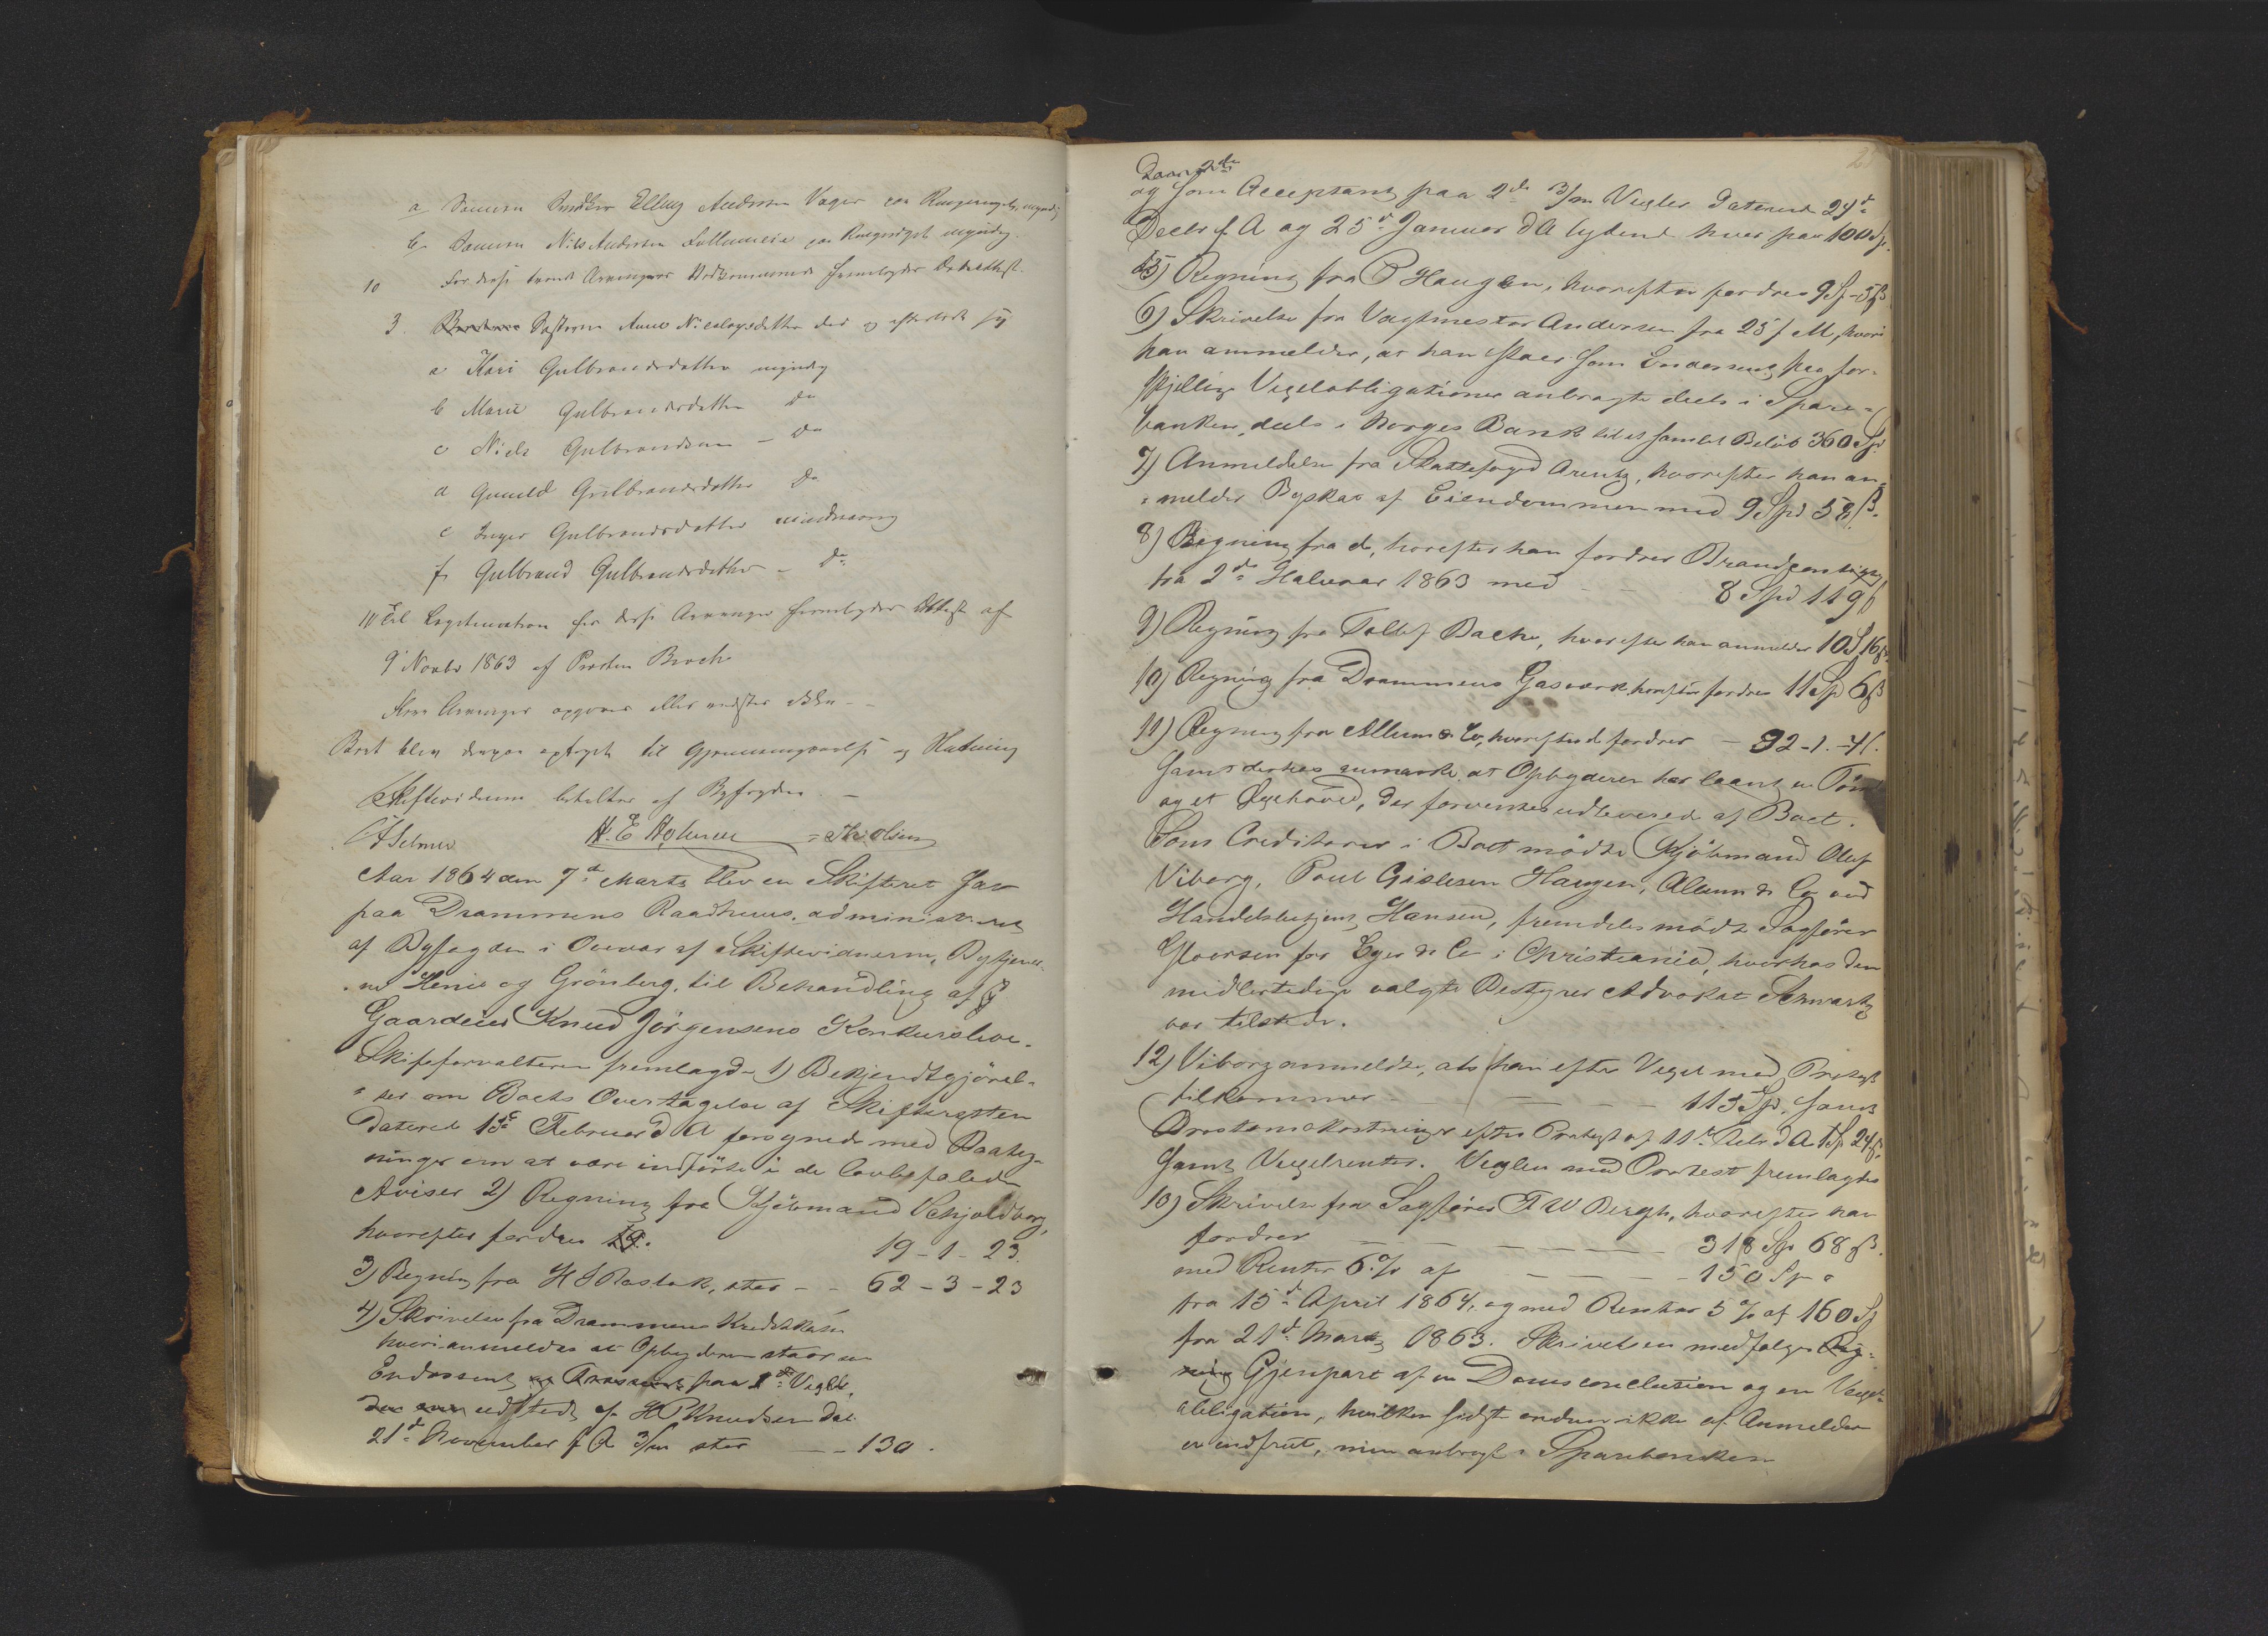 a Sønnen Snedker Elling Andersen Vager paa Kongerigets, myndig
b Sønnen Nils Andersen Sollumeie paa Kongsrigets myndig.
10 For disse tvende Arvingers Vedkommende frembydes Attest.
3. Søsteren Anne Nielsdatter død og efterladt sig
a Kari Gulbrandsdatter myndig
b Marie Gulbrandsdatter do
c Niels Gulbrandsen - do
d Gunild Gulbrandsdatter do
e Inger Gulbrandsdatter mindreaarig
f Gulbrand Gulbrandsdatter - do
11 Til Legitimation for disse Arvinger frembydes Attest af
9 Novbr 1863 af Presten Broch
Flere Arvinger opgaves eller meldtes ikke -
Boet blev derpaa optaget til Gjennemgaaelse og Slutning
Skiftevidnerne betaltes af Byfogden. -
Selmer H. E. Holmen Th: Olsen
Aar 1864 den 7de Marts blev en Skifteret sat
paa Drammens Raadhuus, administreret
af Byfogden i Overvær af Skiftevidnerne, Bytjener-
ne Henie og Grönberg, til Behandling af
Gaardeier Knud Jörgensens Konkursboe.
Skifteforvalteren fremlagde 1) Bekjendtgjörel-
ser om Boets Overtagelse af Skifteretten
dateret 15de Februar d A forsynede med Paateg-
ninger om at være indförte i de lovbefalede
Aviser 2) Regning fra Kjöbmand Schjoldborg,
hvorefter fordres 19. 19-1-23.
3) Regning fra H S Rastok, stor - - 62-3-23
4) Skrivelse fra Drammens Kreditkasse
hvori anmeldes at Opbyderen staar som
Endossent og Trassent paa 1de Vexler,
udstedt af H P Knudsen dat
21de November f A 3/m stor - - 130.
og som Acceptant paa 2de 3/m Vexler daterede 24de
Decbr f A og 25de Januar d A lydende hver paa 100 Sp.
5) Regning fra P Haugen, hvorefter fordres 9 Sp - 5 ß
6) Skrivelse fra Vagtmester Andersen fra 25 f M, hvori
han anmelder, at han staar som Endossent paa for-
skjellige Vexelobligationer anbragte deels i Spare-
banken, deels i Norges Bank til et samlet Belöb 360 Sp.
7) Anmeldelse fra Skattefoged Arentz, hvorefter han an-
melder Byskat af Eiendommen med 9 Spd 58 ß.
8) Regning fra do, hvorefter han fordrer Brandcontingent
fra 2de Halvaar 1863 med - - 8 Spd 119 ß
9) Regning fra Tollef Bache, hvorefter han anmelder 10 S 16 ß
10) Regning fra Drammens Gasværk, hvorefter fordres 11 Sp 6 ß
11) Regning fra Allum & Co, hvorefter de fordrer - 32-1-41.
samt derhos anmærke at Opbyderen har laant en
og et, der forventes udleveret af Boet.
Som Creditorer i Boet mödte Kjöbmand Oluf
Viborg, Poul Gislesen Haugen, Allum & Co ved
Handelsbetjent Hansen, fremdeles mödte Sagförer
for Eger & Co i Christiania, hvorhos den
midlertidige valgte Bestyrer Advokat Schwartz
var tilstede.
12) Viborg anmeldte, at han efter Vexel med Protest
tilkommer - - - 113 Spd, samt
Protestomkostninger efter Protest af 11te Febr d A 1 Sp 24 ß.
samt Vexelrenter. Vexlen med Protest fremlagdes
10) Skrivelse fra Sagförer F W Bergh, hvorefter han
fordrer - - - 318 Sp 68 ß.
med Renter 6 % af - - - 150 Sp
fra 15de April 1864, og med Renter 5 % af 160 Sp
fra 21de Marts 1863. Skrivelsen medfölger
Gjenpart af en Domsconclusion og en Vexel-
obligation, hvilken sidste endnu ikke af Anmelder
er indfriet, men anbragt i Sparebanken